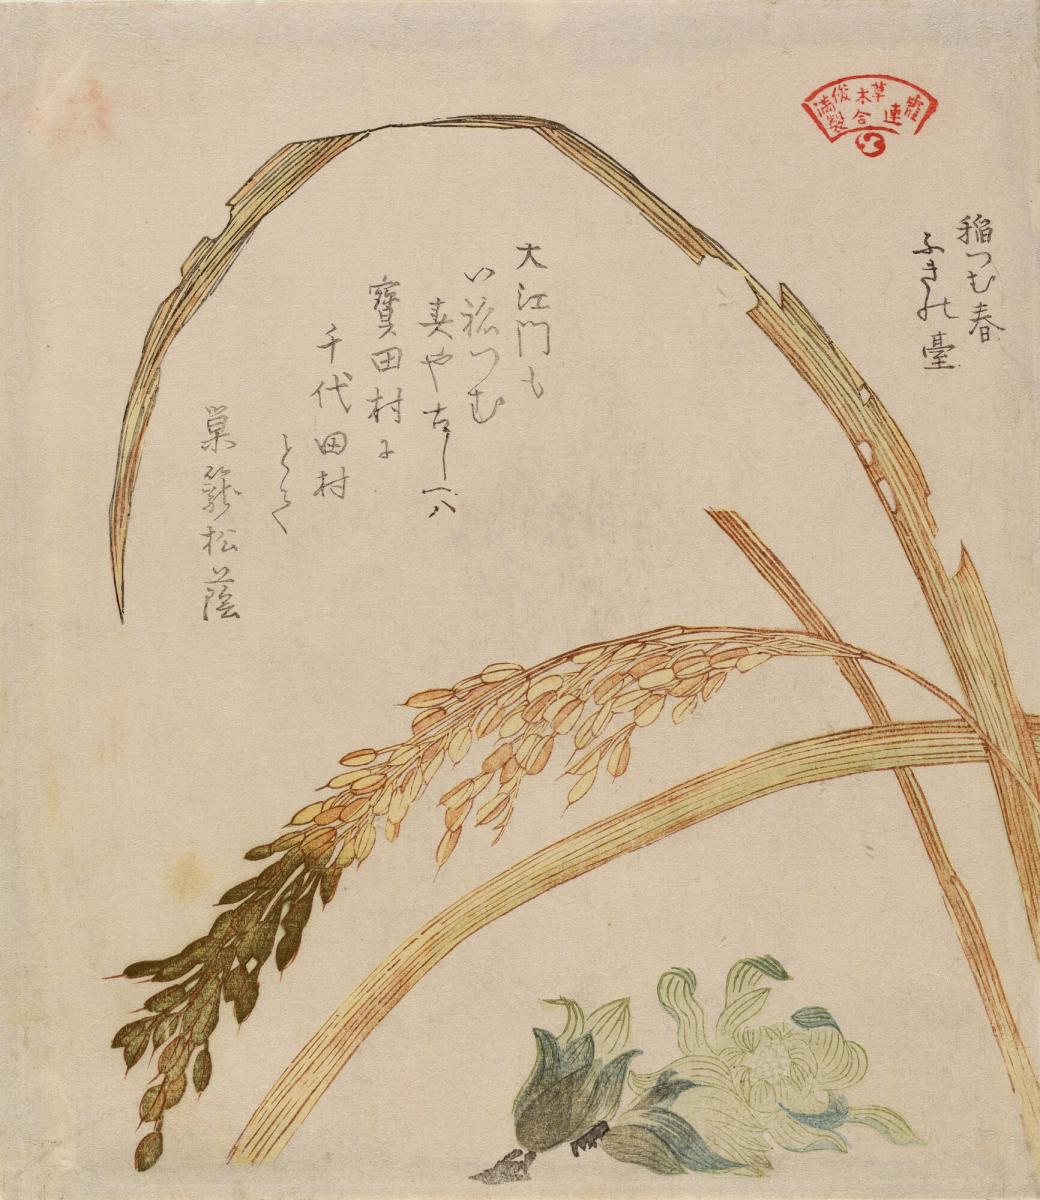 霞連
草木合
俊満製
稲つむ春
ふきの臺
大江門も
いねつむ
春や古しへハ
寶田村に
千代田村
とて
巣籠松蔭